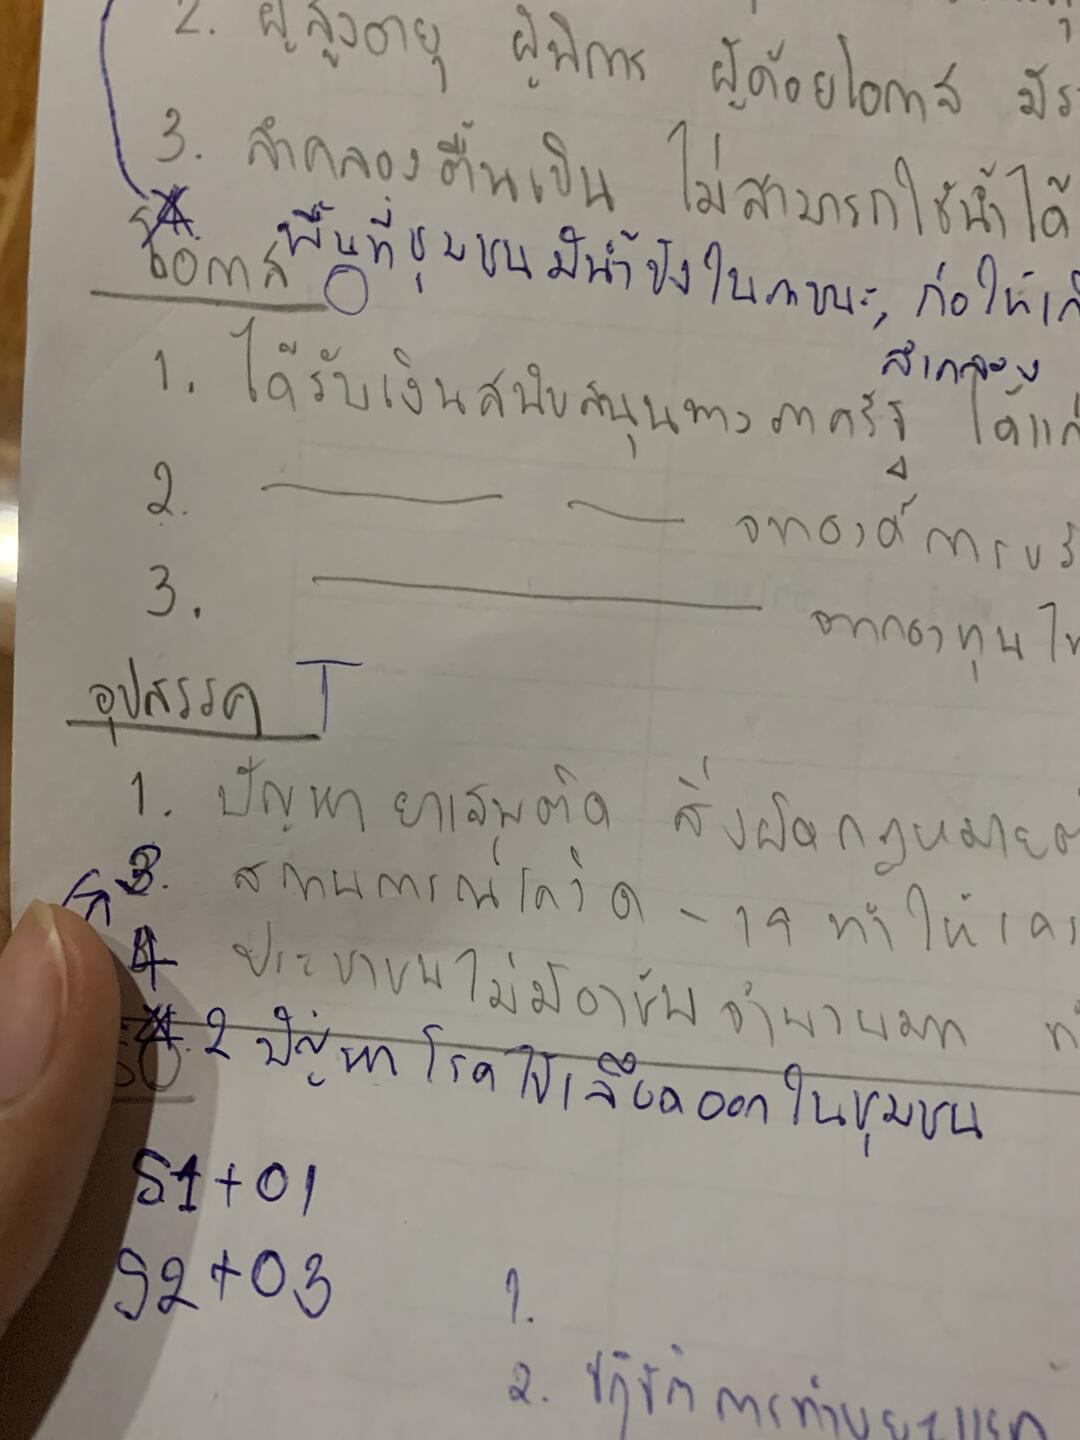 2. ผู้สูงอายุ ผู้พิการ ผู้ด้อยโอกาส มีร
3. ลำคลองตื้นเขิน ไม่สามารถใช้น้ำได้
พื้นที่ชุมชนมีน้ำขังในภาชนะ, ก่อให้เกิ
โอกาส O
ลำคลอง
1. ได้รับเงินสนับสนุนทางภาครัฐ ได้แก่
2. จากองค์การบริ
3. จากกองทุน
อุปสรรค T
1. ปัญหา ยาเสพติด สิ่งผิดกฎหมาย
3. สถานการณ์โควิด - 19 ทำให้
4 ประชาชนไม่มีอาชีพ จำนวนมาก
2 ปัญหา โรคไข้เลือดออกในชุมชน
SO
S1+O1
S2+O3
1.
2.